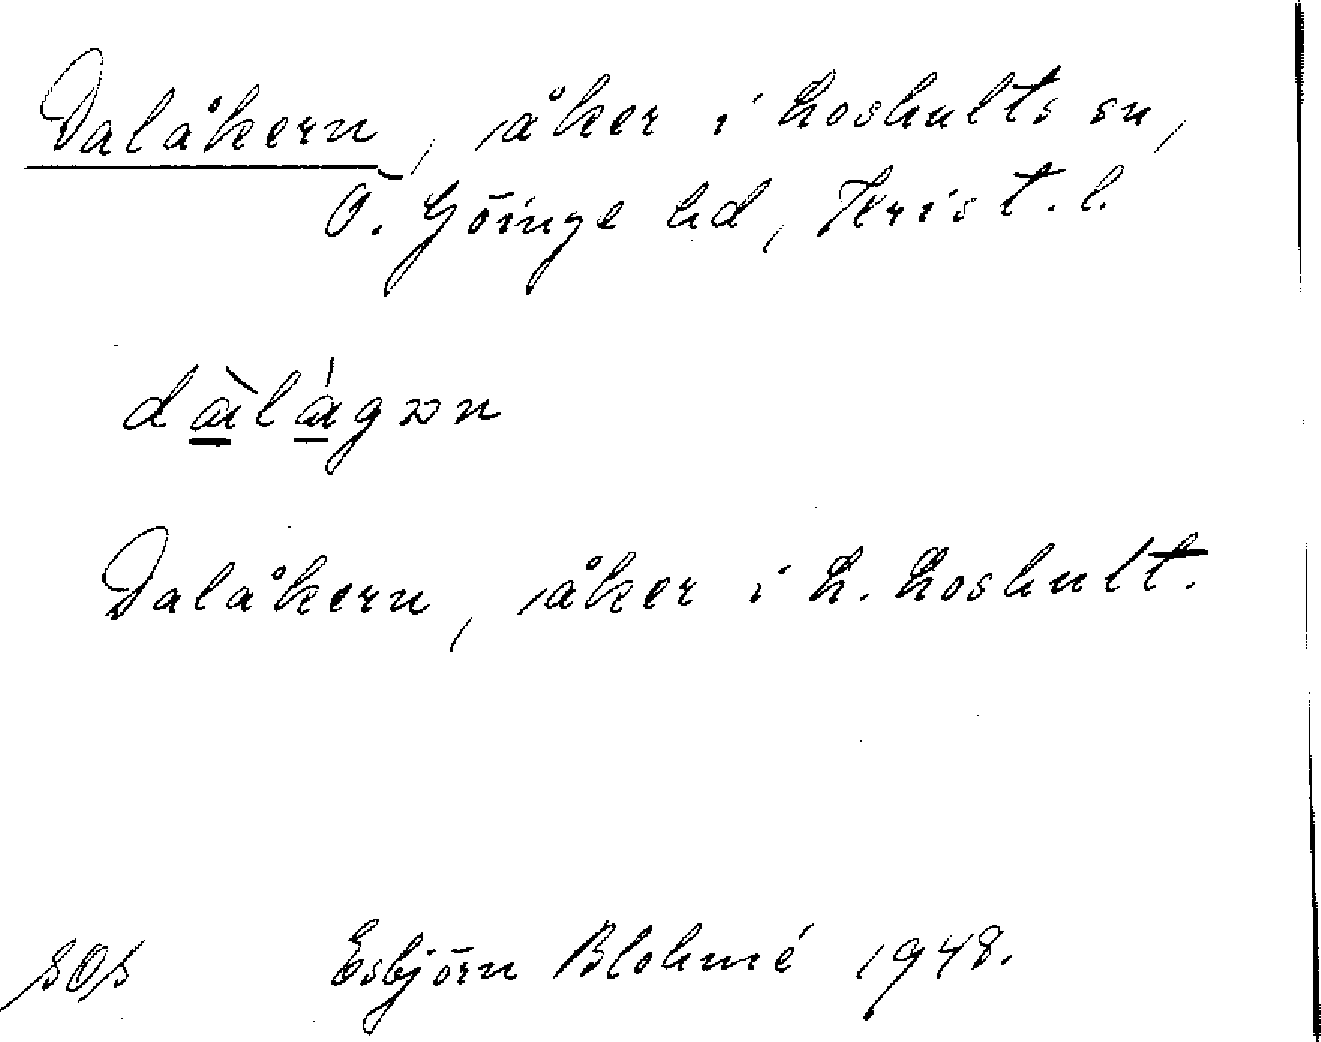 Dalåkern, åker i Loshults sn,
Ö. Göinge hd, Krist. l.
dàlágən
Dalåkern, åker i L. Loshult.
SOS Esbjörn Blohmé 1948.